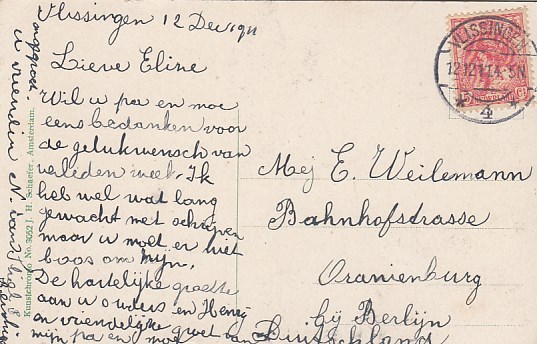 Vlissingen 12 Dec 1911
Lieve Eline
Wil u pa en moe
eens bedanken voor
de gelukwensch van
verleden week. Ik
heb wel wat lang
gewacht met schrijven
maar u moet er niet
boos om mijn,
De hartelijke groeten
aan u ouders en Henry
en vriendelijke groet van
mijn pa en moe
u vriendin N.
Kunstchromo No. 3052 J. H. Schaefer, Amsterdam.
VLISSINGEN
12.12.11.4-5N
4
Mej E. Weilemann
Bahnhofstrasse
Oranienburg
bij Berlijn
Duitschland